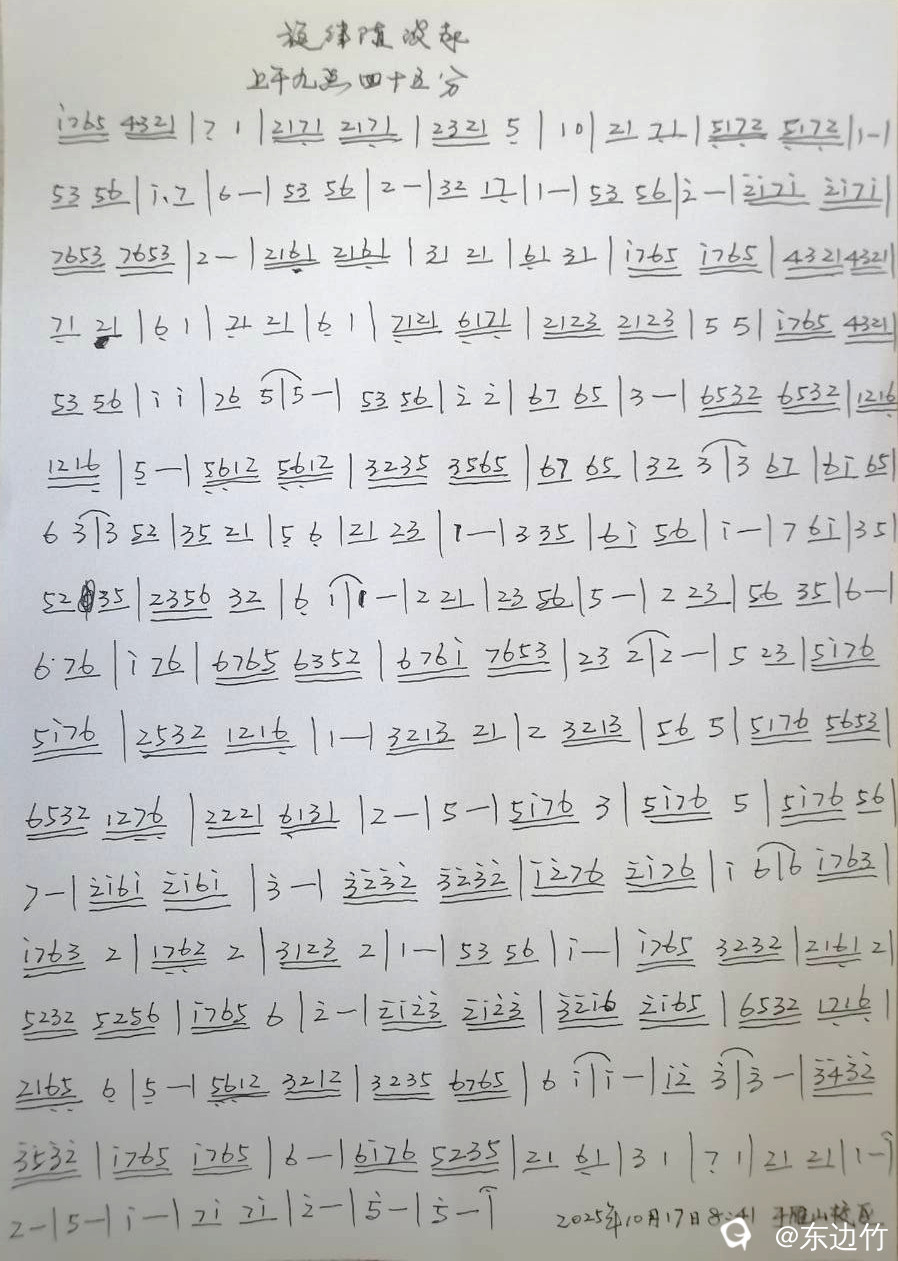 旋律随波起
上午九点四十五分
i765 4321 | 7 1 | 2171 2171 | 2321 5 | 10 | 21 71 | 5172 5172 | 1 - |
53 56 | i.7 | 6 - | 53 56 | 2 - | 32 17 | 1 - | 53 56 | 2 - | 2i7i 2i7i |
7653 7653 | 2 - | 2161 2161 | 31 21 | 61 31 | i765 i765 | 4321 4321 |
71 21 | 6 1 | 21 21 | 6 1 | 7121 6171 | 2123 2123 | 5 5 | i765 4321 |
53 56 | i i | 26 5 | 5 - | 53 56 | 2 2 | 67 65 | 3 - | 6532 6532 | 1216
1216 | 5 - | 5612 5612 | 3235 3565 | 67 65 | 32 3 | 3 67 | 6i 65 |
6 3 | 3 52 | 35 21 | 5 6 | 21 23 | 1 - | 3 35 | 6i 56 | i - | 7 6i | 35 |
52 35 | 2356 32 | 6 i | 1 - | 2 21 | 23 56 | 5 - | 2 23 | 56 35 | 6 - |
6 76 | i 76 | 6765 6352 | 676i 7653 | 23 2 | 2 - | 5 23 | 5i76
5i76 | 2532 1216 | 1 - | 3213 21 | 2 3213 | 56 5 | 5176 5653 |
6532 1276 | 2221 6131 | 2 - | 5 - | 5i76 3 | 5i76 5 | 5i76 56 |
7 - | 2i6i 2i6i | 3 - | 3232 3232 | i276 2i76 | i 6 | 6 i763 |
i763 2 | 1762 2 | 3123 2 | 1 - | 53 56 | i - | i765 3232 | 2161 2 |
5232 5256 | i765 6 | 2 - | 2i23 2i23 | 32i6 2i65 | 6532 1216 |
2165 6 | 5 - | 5612 3212 | 3235 6765 | 6 i | i - | i2 3 | 3 - | 3432
3532 | i765 i765 | 6 - | 6i76 5235 | 21 61 | 3 1 | 7 1 | 21 21 | 1 - |
2 - | 5 - | i - | 7i 7i | 2 - | 5 - | 5 - |
2025年10月17日8:41 于雁山
@东边竹